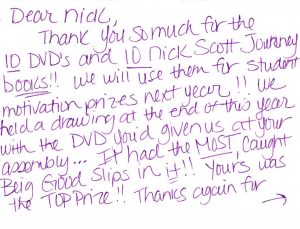 Dear Nick,
Thank you so much for the
10 DVD's and 10 Nick Scott Journey
books!! We will use them for student
motivation prizes next year!! We
held a drawing at the end of this year
with the DVD you'd given us at your
assembly... It had the MOST, Caught
Being Good Slips in it!! Yours was
the TOP Prize!! Thanks again for →